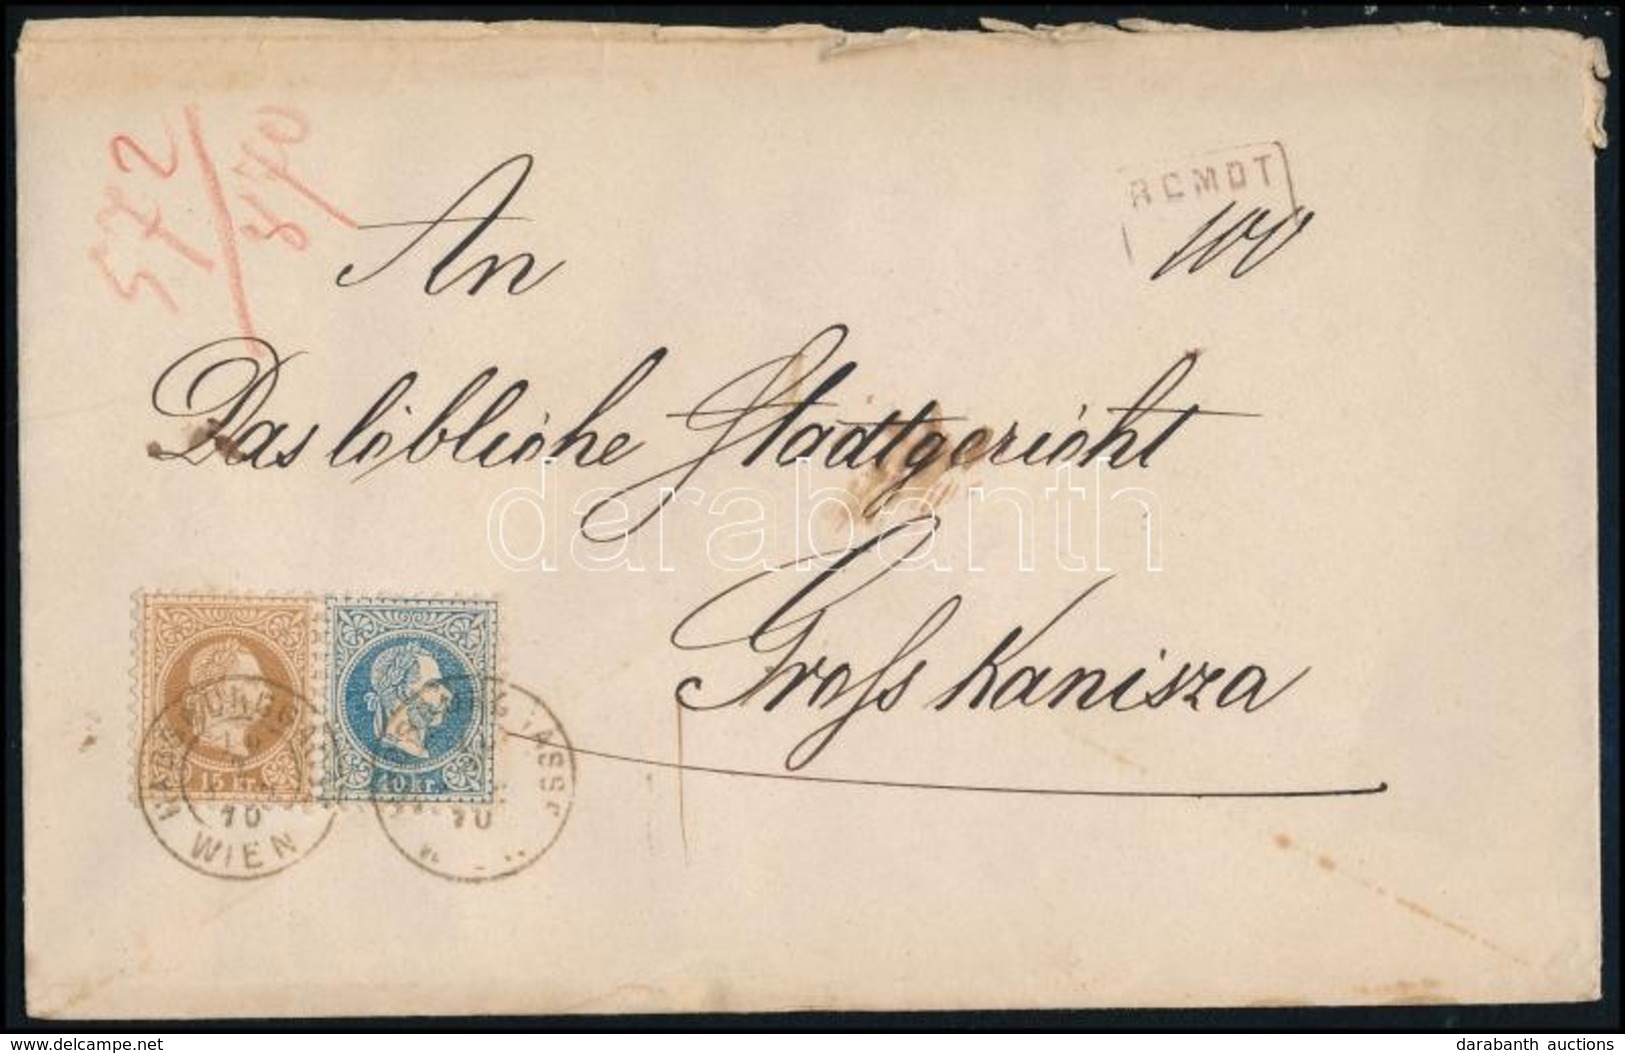 572/870
RCMDT
An
100
Das löbliche Stadtgericht
Gross Kanisza
darabanth
15 kr. 10 kr.
70 70
WIEN
www.delcampe.net
darabanth auctions